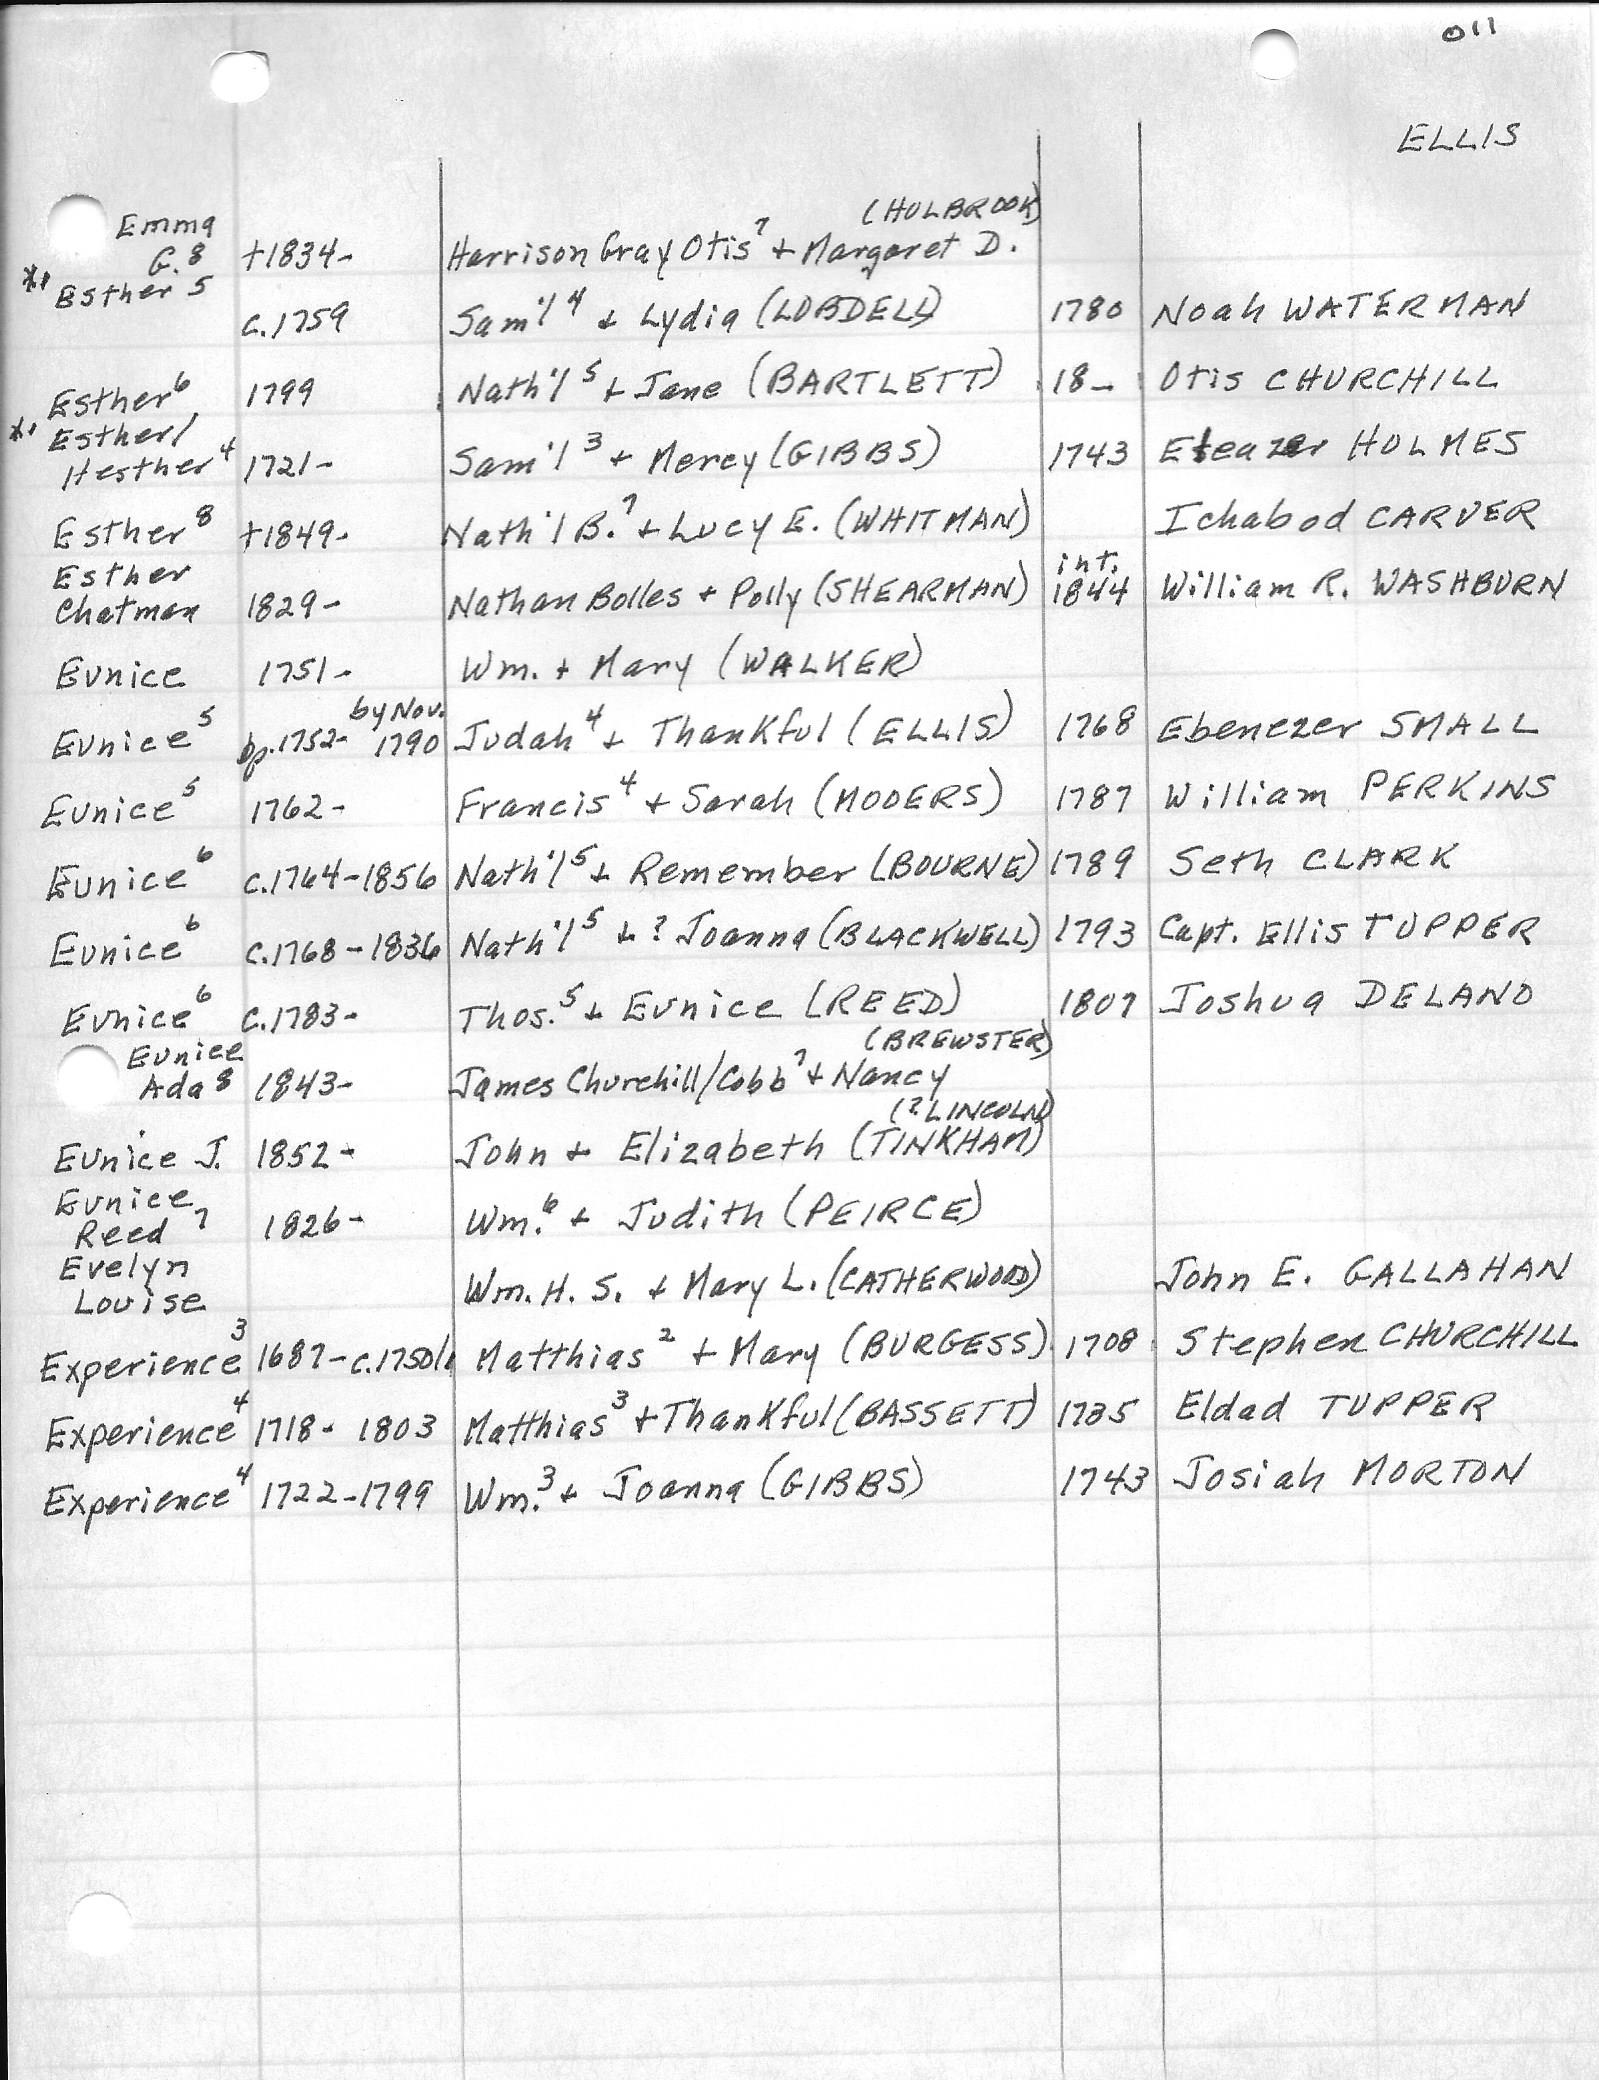 011
ELLIS
Emma (HOLBROOK)
G.8 +1834- Harrison Gray Otis7 + Margaret D.
*• Esther5 c.1759 Sam'l4 + Lydia (LOBDELL) 1780 Noah WATERMAN
Esther6 1799 Nath'l5 + Jane (BARTLETT) 18- Otis CHURCHILL
*• Esther/
Hesther4 1721- Sam'l3 + Mercy (GIBBS) 1743 Eleazer HOLMES
Esther8 +1849- Nath'l B.7 + Lucy E. (WHITMAN) Ichabod CARVER
Esther int.
Chatman 1829- Nathan Bolles + Polly (SHEARMAN) 1844 William R. WASHBURN
Eunice 1751- Wm. + Mary (WALKER)
by Nov.
Eunice5 bp.1752- 1790 Judah4 + Thankful (ELLIS) 1768 Ebenezer SMALL
Eunice5 1762- Francis4 + Sarah (MOOERS) 1787 William PERKINS
Eunice6 c.1764-1856 Nath'l5 + Remember (BOURNE) 1789 Seth CLARK
Eunice6 c.1768-1836 Nath'l5 + ? Joanna (BLACKWELL) 1793 Capt. Ellis TUPPER
Eunice6 c.1783- Thos.5 + Eunice (REED) 1807 Joshua DELANO
Eunice (BREWSTER)
Ada8 1843- James Churchill/Cobb7 + Nancy
(?LINCOLN)
Eunice J. 1852- John + Elizabeth (TINKHAM)
Eunice
Reed7 1826- Wm.6 + Judith (PEIRCE)
Evelyn
Louise Wm. H. S. + Mary L. (CATHERWOOD) John E. GALLAHAN
Experience3 1687-c.1750/1 Matthias2 + Mary (BURGESS) 1708 Stephen CHURCHILL
Experience4 1718- 1803 Matthias3 + Thankful (BASSETT) 1735 Eldad TUPPER
Experience4 1722-1799 Wm.3 + Joanna (GIBBS) 1743 Josiah MORTON